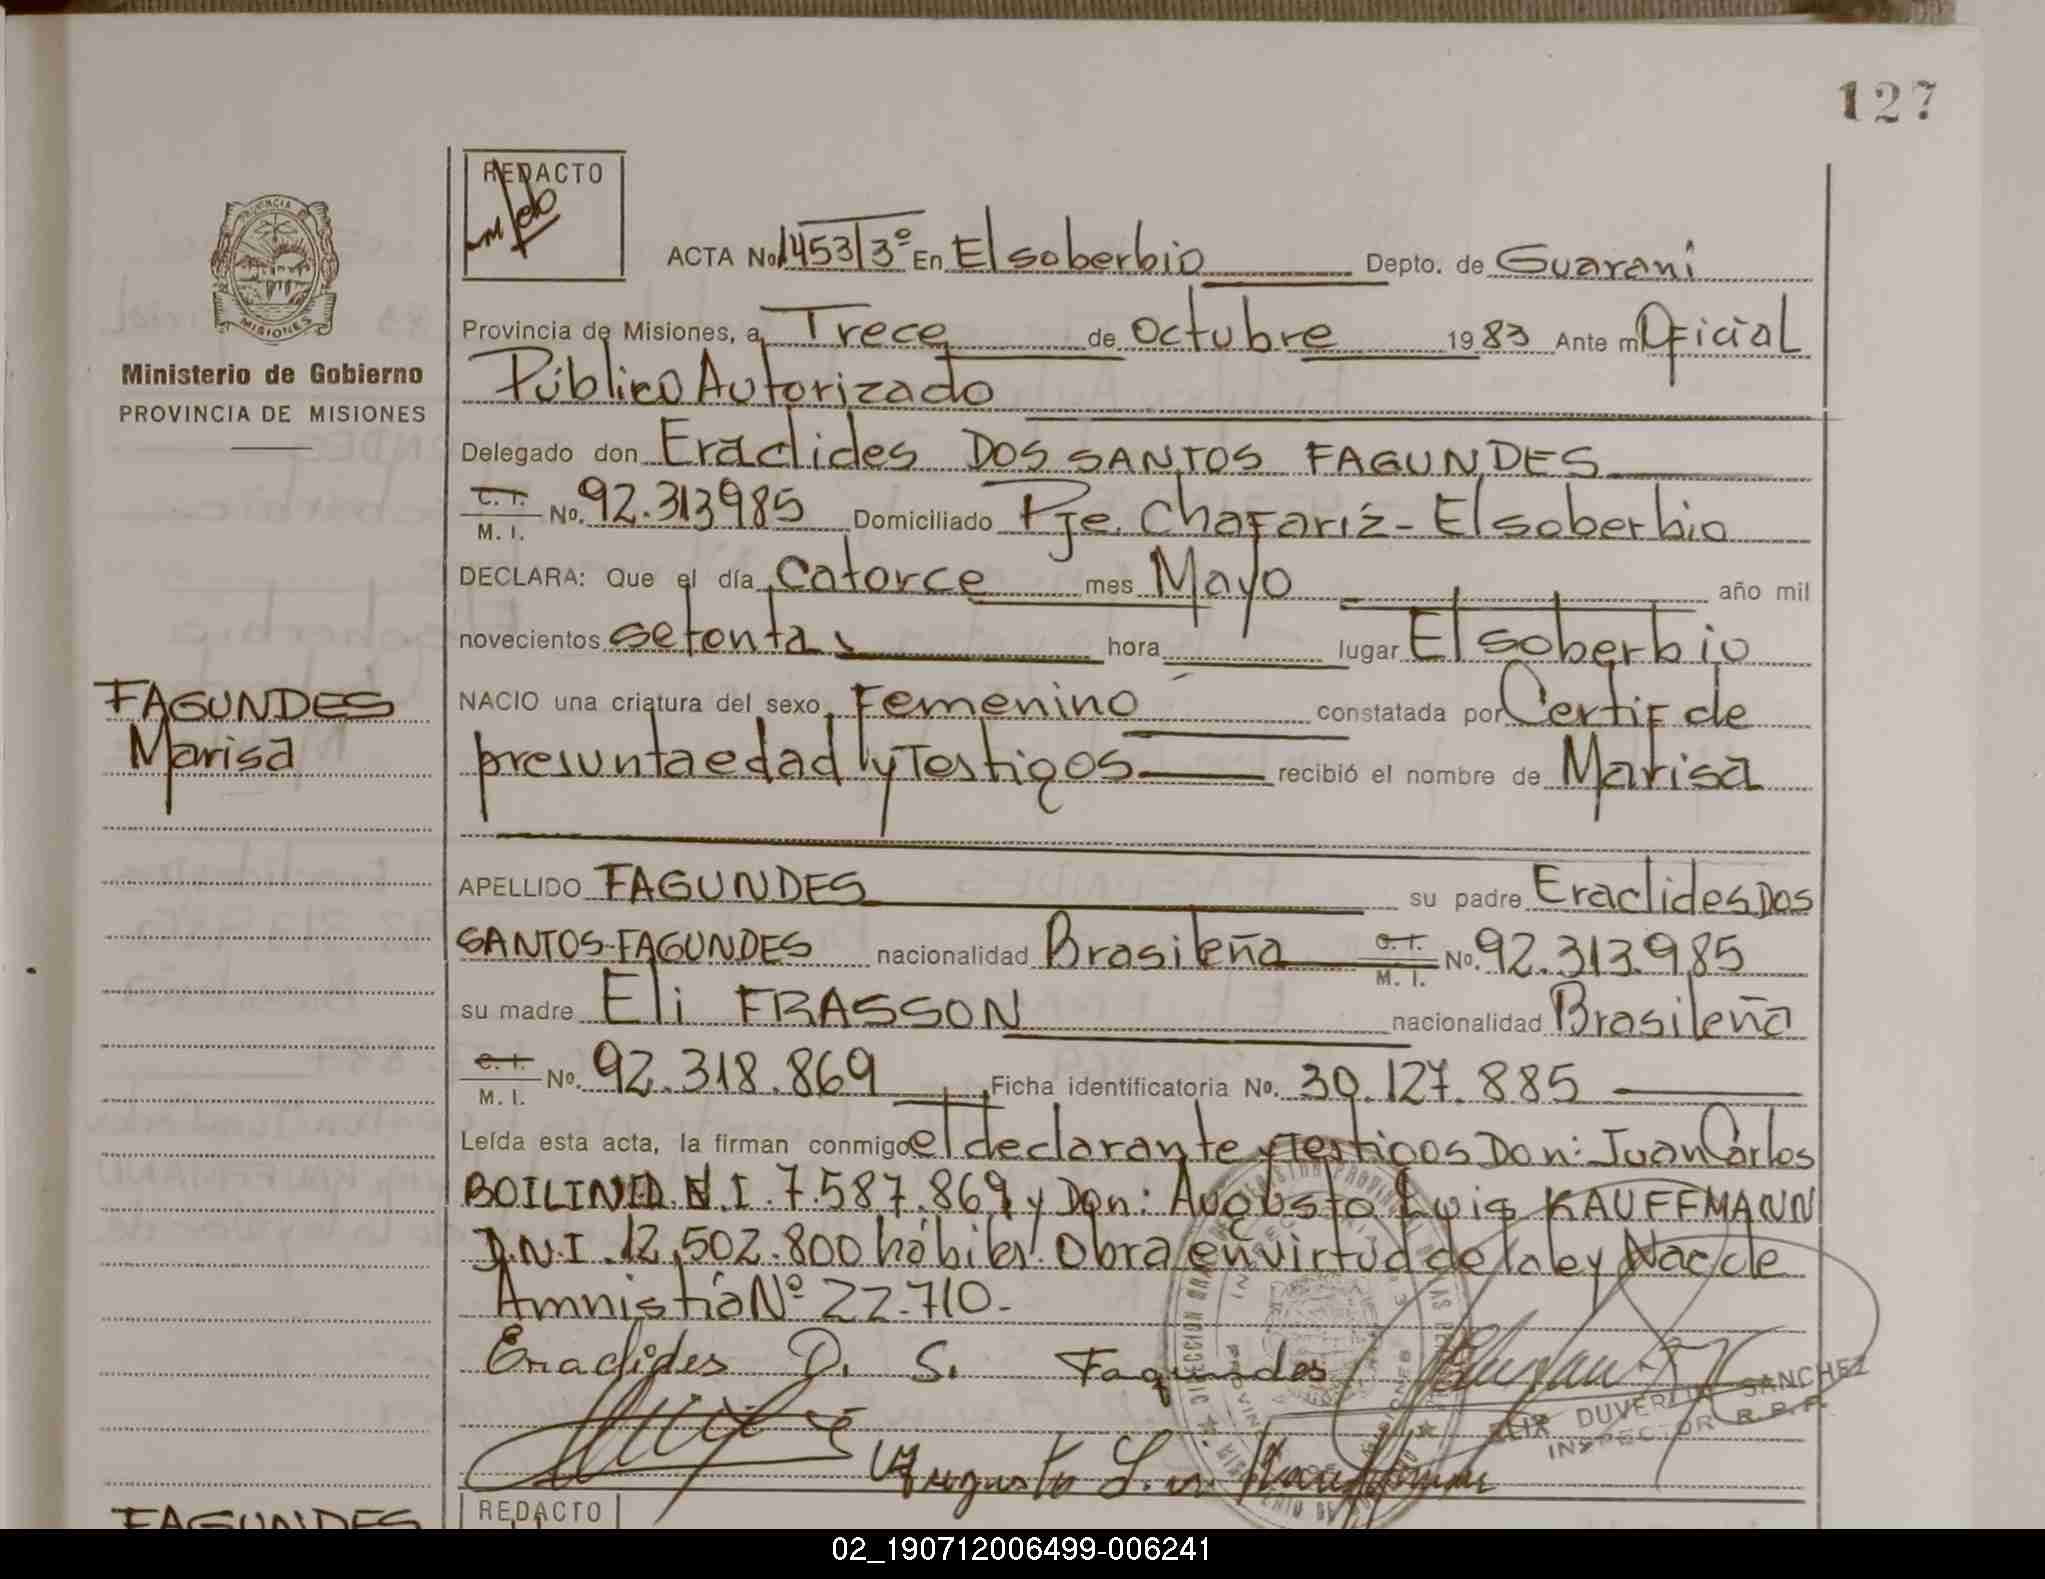 127
REDACTO
PROVINCIA DE
MISIONES
Ministerio de Gobierno
PROVINCIA DE MISIONES
ACTA No. 1453/3º En El soberbio Depto. de Guarani
Provincia de Misiones, a Trece de octubre 1983 Ante mi Oficial
Público Autorizado
Delegado don Eraclides DOS SANTOS FAGUNDES
C. I.
M. I. No. 92.313985 Domiciliado Pje. Chafariz - El soberbio
DECLARA: Que el día catorce mes Mayo año mil
novecientos setenta hora lugar El soberbio
NACIO una criatura del sexo Femenino constatada por Certif de
presunta edad y Testigos recibió el nombre de Marisa
FAGUNDES
Marisa
APELLIDO FAGUNDES su padre Eraclides DOS
SANTOS-FAGUNDES nacionalidad Brasileña C. I. M. I. No. 92.313.985
su madre Eli FRASSON nacionalidad Brasileña
C. I.
M. I. No. 92.318.869 Ficha identificatoria No. 30.127.885
Leída esta acta, la firman conmigo el declarante y Testigos Don: Juan Carlos
BOILINI D.N.I. 7.587.869 y Don: Augusto Luis KAUFFMANN
D.N.I. 12.502.800 hábiles. Obra en virtud de la ley Nac de
Amnistiá Nº 22.710.-
Eraclides D. S. Fagundes
SANCHEZ
INSPECTOR R.P.P.
Augusto L. Kauffmann
REDACTO
FAGUNDES
02_190712006499-006241